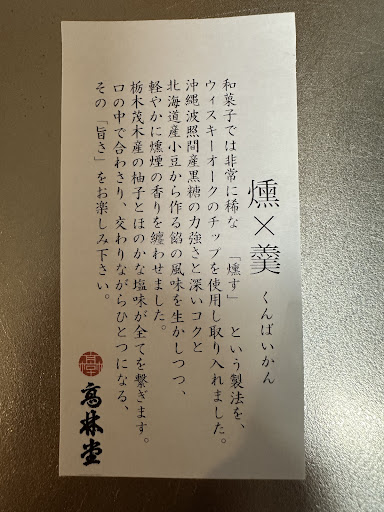 燻×羹 くんばいかん
和菓子では非常に稀な 「燻す」 という製法を、
ウィスキーオークのチップを使用し取り入れました。
沖縄波照間産黒糖の力強さと深いコクと
北海道産小豆から作る餡の風味を生かしつつ、
軽やかに燻煙の香りを纏わせました。
栃木茂木産の柚子とほのかな塩味が全てを繋ぎます。
口の中で合わさり、交わりながらひとつになる、
その「旨さ」をお楽しみ下さい。
高林堂